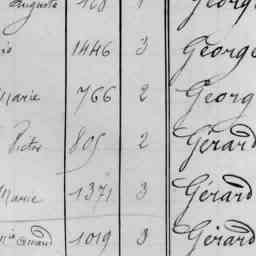 Auguste 1 George
1446 3 George
Marie 766 2 Georg
Victor 805 2 Gérard
Marie 1371 3 Gérard
1019 3 Gérard